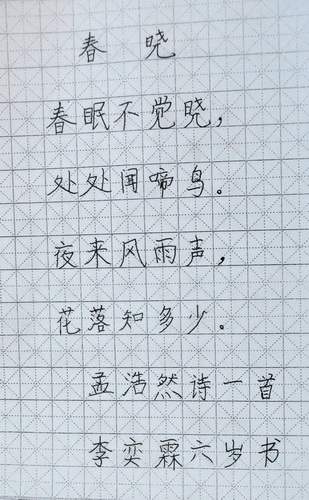 春晓
春眠不觉晓，
处处闻啼鸟。
夜来风雨声，
花落知多少。
孟浩然诗一首
李奕霖六岁书